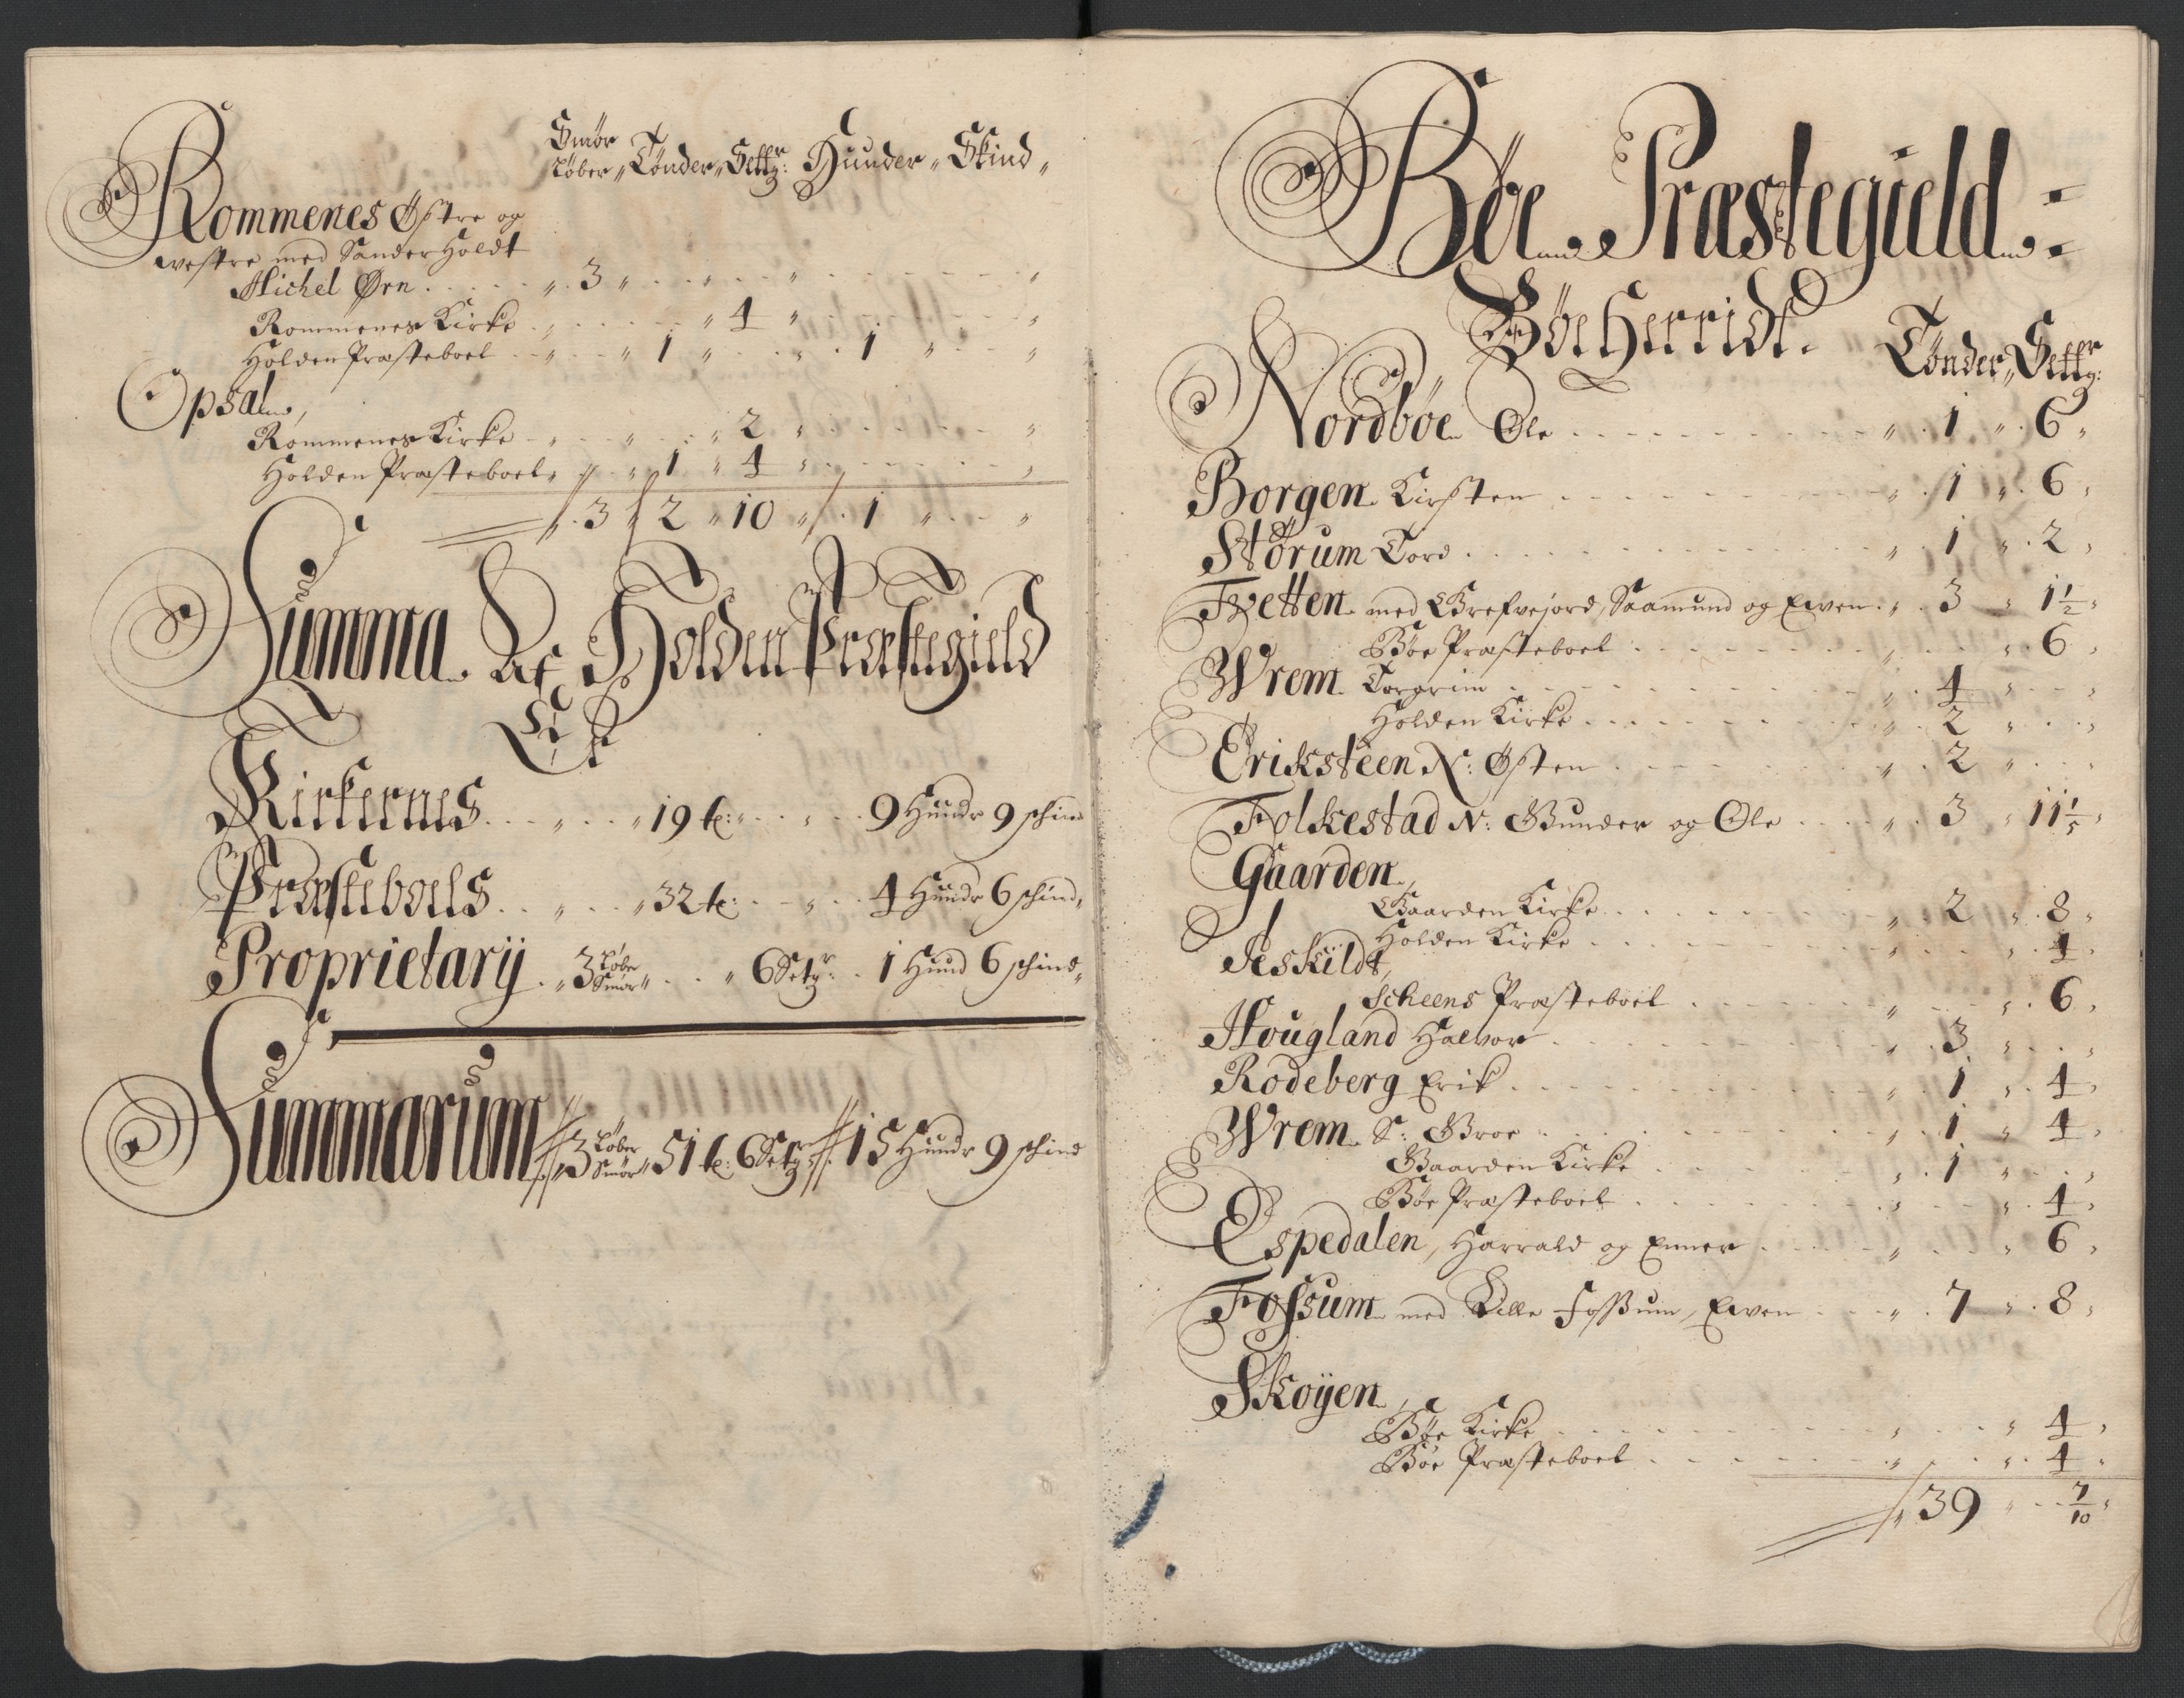 Smør
Løber „ Tønder „ Settgr: Huuder „ Skind „
Rommenes Østre og
westre med Sanderholdt
Michel Ørn . . . . . „ . 3 „ . . . „ . . . „ . . . . . . . „
Rommenes Kirke . „ . . . . . . „ 4 „ . . . . . . . „
Holden Præsteboel . . „ . . . „ 1 „ . . . . „ . 1 „ . . . „
Opsal,
Rommenes Kirke . . „ . . . „ . . . „ 2 „ . . . . . . . „
Holden Præsteboel „ „ . . „ 1 „ 4 „ . . . . . . . „
„ . 3 „ 2 „ 10 „ . 1 „ . . . „
Summa Af Holden Præstegield
Er
Kirkernes . . . „ . . . „ 19 t: „ . . . „ . . 9 Hundr 9 schind
Præsteboels . . . „ . . . „ 32 t: . . . „ . . 4 Hundr 6 schind,
Proprietarij . „ 3 Løbr Smør „ . . . „ 6 Setgr: . 1 Hund 6 schind „
Summarum „ 3 Løber Smør „ 51 t: 6 Setgr: 15 Hundr 9 schind
Bøe Præstegield :
Bøe Herridt.
Tønder „ Settgr:
Nordbøe Ole . . . . . . . . „ . 1 „ . 6 „
Borgen Kirsten . . . . . . . . „ . 1 „ . 6 „
Størum Tord . . . . . . . . „ . 1 „ . 2 „
Tvetten med Grefvejord, Saamund og Ewen . „ . 3 „ 1 1/2 „
Bøe Præsteboel . . . . . . . „ . . . „ . 6 „
Wrem Torgrim . . . . . . . . „ . 4 „ . . „
Holden Kirke . . . . . . . . „ . 2 „ . . „
Eriksteen N: Østen . . . . . . . „ . 2 „ . . „
Folkestad N: Gunder og Ole . . . . „ . 3 „ 11 1/5 „
Gaarden,
Gaarden Kirke . . . . . . . „ . 2 „ . 8 „
Holden Kirke . . . . . . . „ . . . „ . 4 „
Aeskildt,
Scheens Præsteboel . . . . . . „ . . . „ . 6 „
Hougland Halvor . . . . . . . „ . 3 „ . . „
Rodeberg Erik . . . . . . . . „ . 1 „ . 4 „
Wrem S: Groe . . . . . . . . „ . 1 „ . 4 „
Gaarden Kirke . . . . . . . „ . 1 „ . . „
Bøe Præsteboel . . . . . . . „ . . . „ . 4 „
Espedalen, Harrald og Enner . . . . „ . . . „ 6 „
Fossum med Lille Fossum, Ewen . . . „ . 7 „ . 8 „
Skoyen,
Bøe Kirke . . . . . . . . „ . . . „ 4 „
Bøe Præsteboel . . . . . . . „ . . . „ . 4 „
„ 39 „ . . 7/10 „